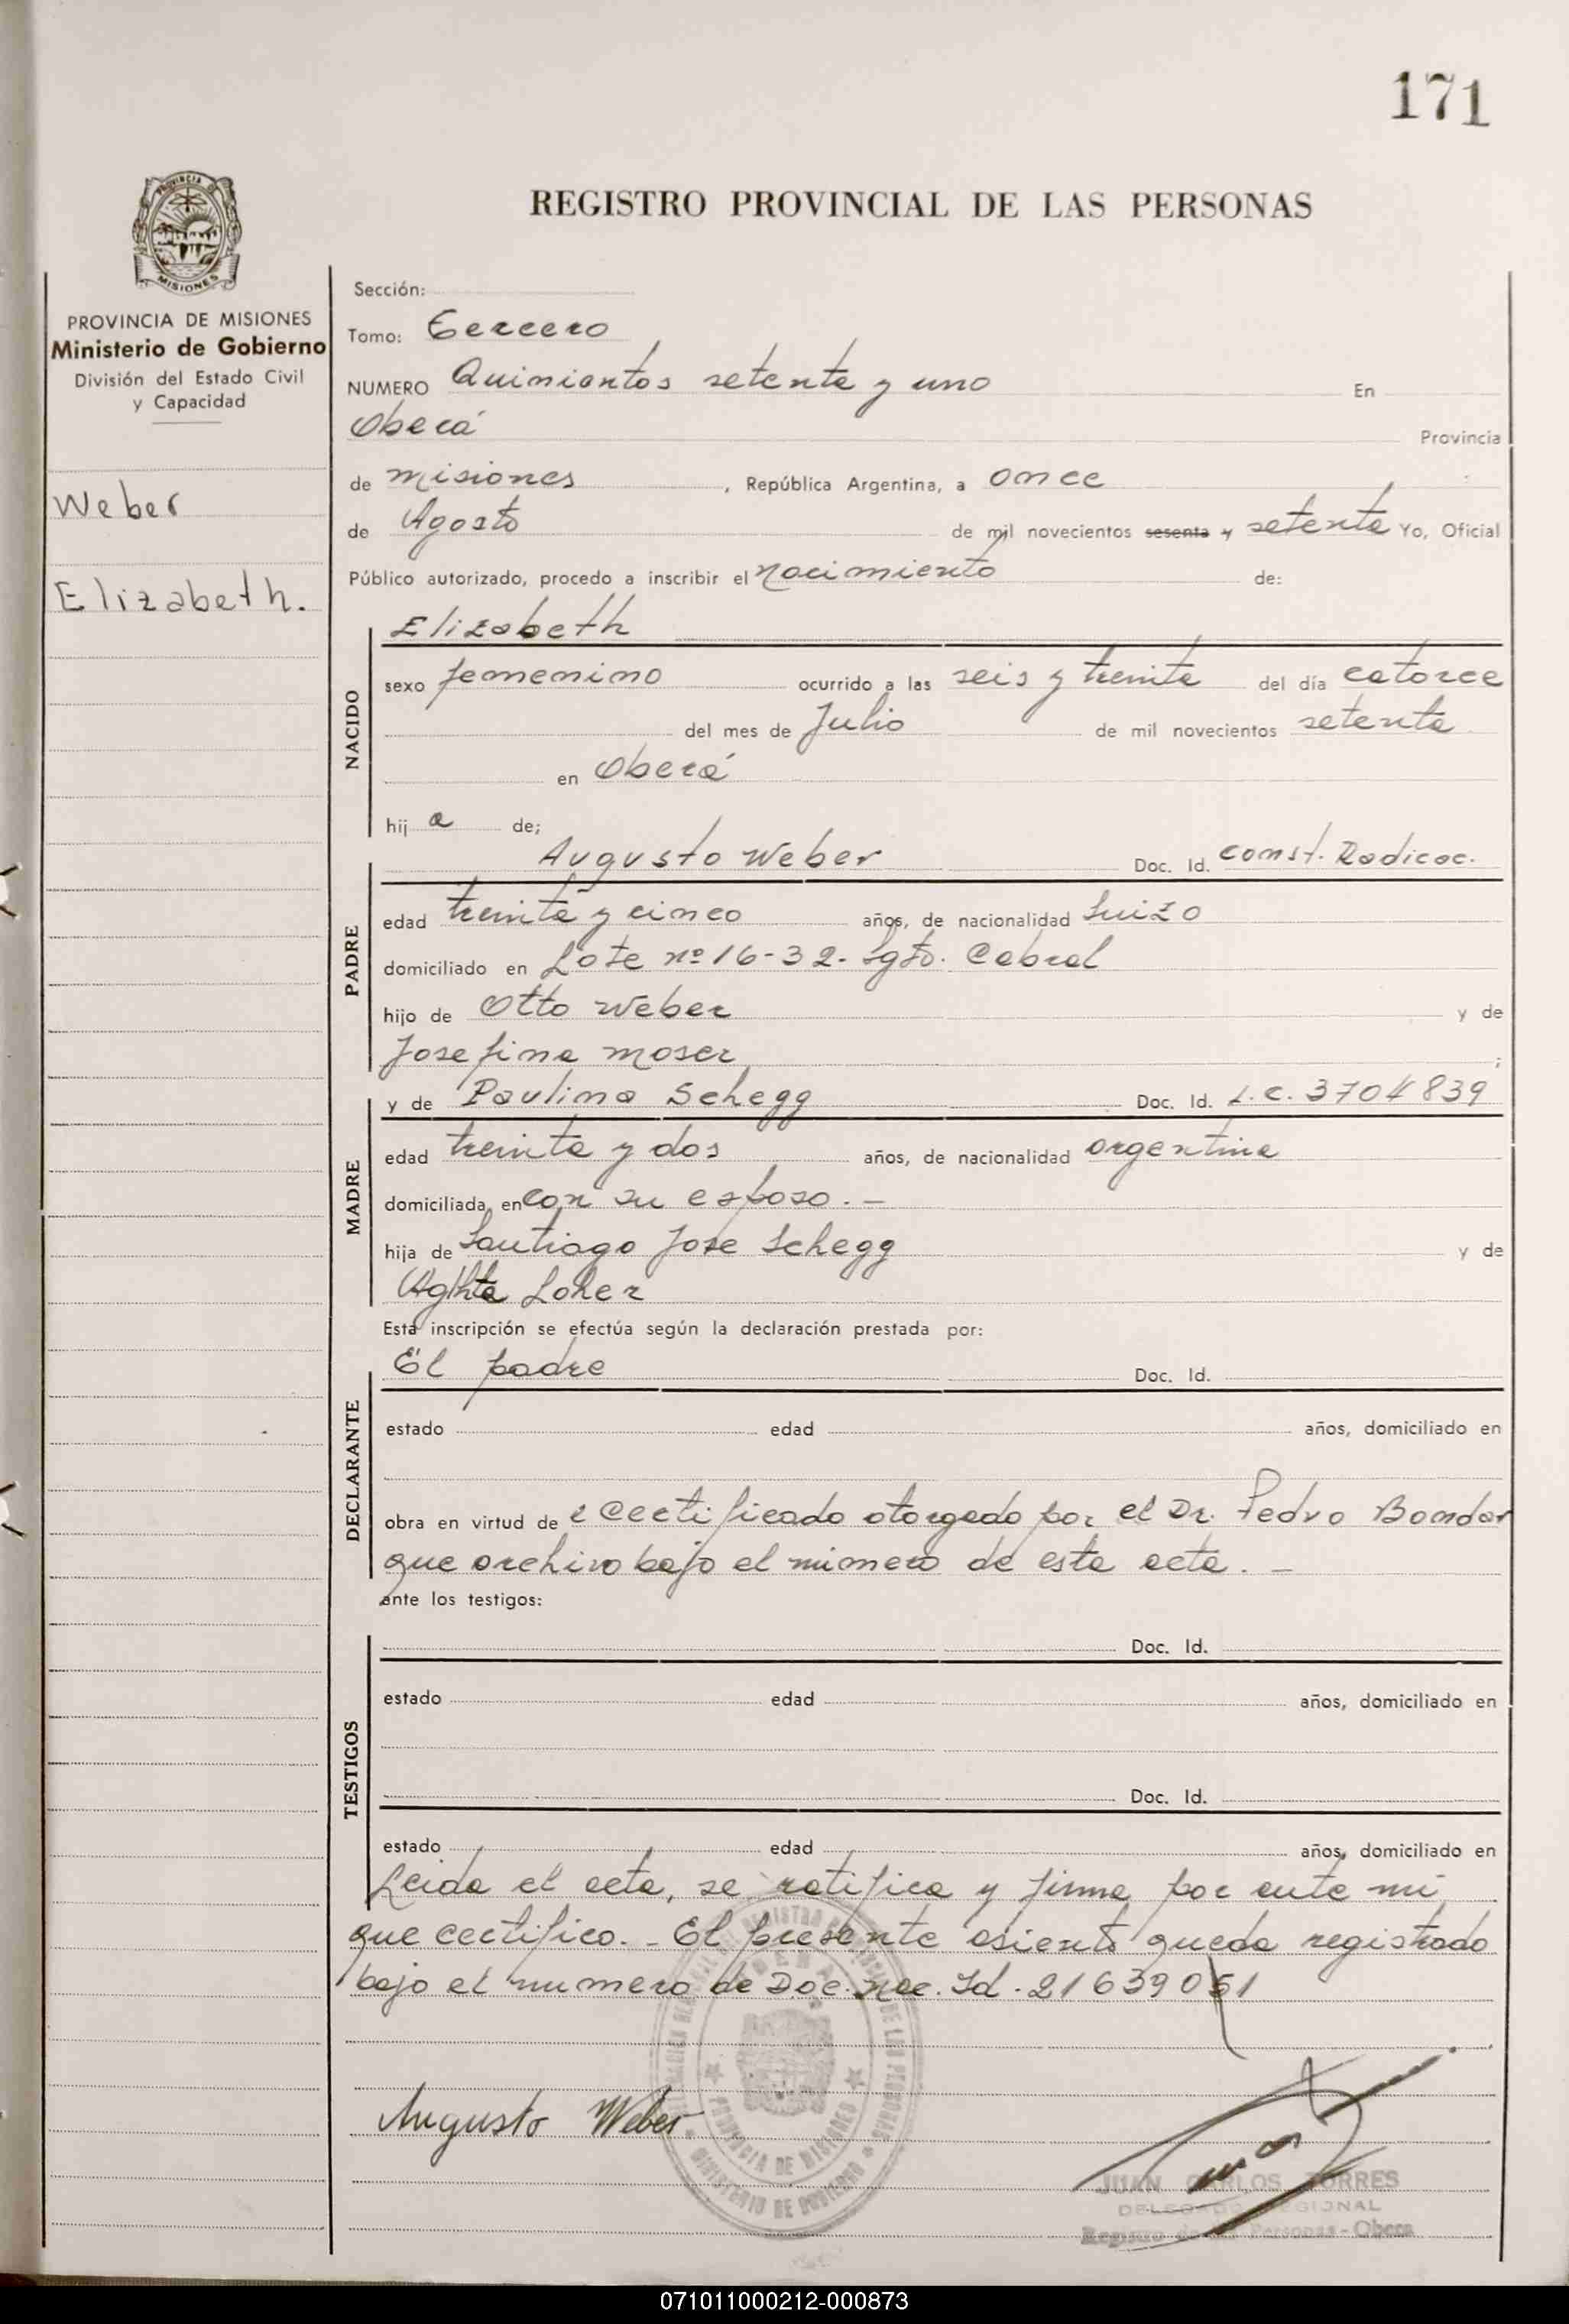 171
REGISTRO PROVINCIAL DE LAS PERSONAS
PROVINCIA DE MISIONES
Ministerio de Gobierno
División del Estado Civil
y Capacidad
Weber
Elizabeth.
Sección:
Tomo: Tercero
NUMERO Quinientos setenta y uno En
Oberá Provincia
de misiones , República Argentina, a once
de Agosto de mil novecientos sesenta y setenta Yo, Oficial
Público autorizado, procedo a inscribir el nacimiento de:
Elizabeth
NACIDO
sexo femenino ocurrido a las seis y treinta del día catorce
del mes de Julio de mil novecientos setenta
en Oberá
hij a de;
PADRE
Augusto Weber Doc. Id. const. Radicac.
edad treinta y cinco años, de nacionalidad Suizo
domiciliado en Lote nº 16-32- Sgto. Cabral
hijo de Otto Weber y de
Josefina moser ;
MADRE
y de Paulina Schegg Doc. Id. L.C. 3704839
edad treinta y dos años, de nacionalidad argentina
domiciliada en con su esposo. -
hija de Santiago Jose Schegg y de
Loher
Esta inscripción se efectúa según la declaración prestada por:
DECLARANTE
El padre Doc. Id.
estado edad años, domiciliado en
obra en virtud de Certificado otorgado por el Dr. Pedro Bondar
que archivo bajo el número de esta acta. -
ante los testigos:
TESTIGOS
Doc. Id.
estado edad años, domiciliado en
Doc. Id.
estado edad años, domiciliado en
Leida el acta, se ratifica y firma por ante mi
que certifico. - El presente asiento queda registrado
bajo el numero de Doc. nac. Id. 21639051
Augusto Weber
PROVINCIA DE MISIONES
MINISTERIO DE GOBIERNO
JUAN CARLOS TORRES
DELEGADO REGIONAL
Registro de las Personas - Obera
071011000212-000873